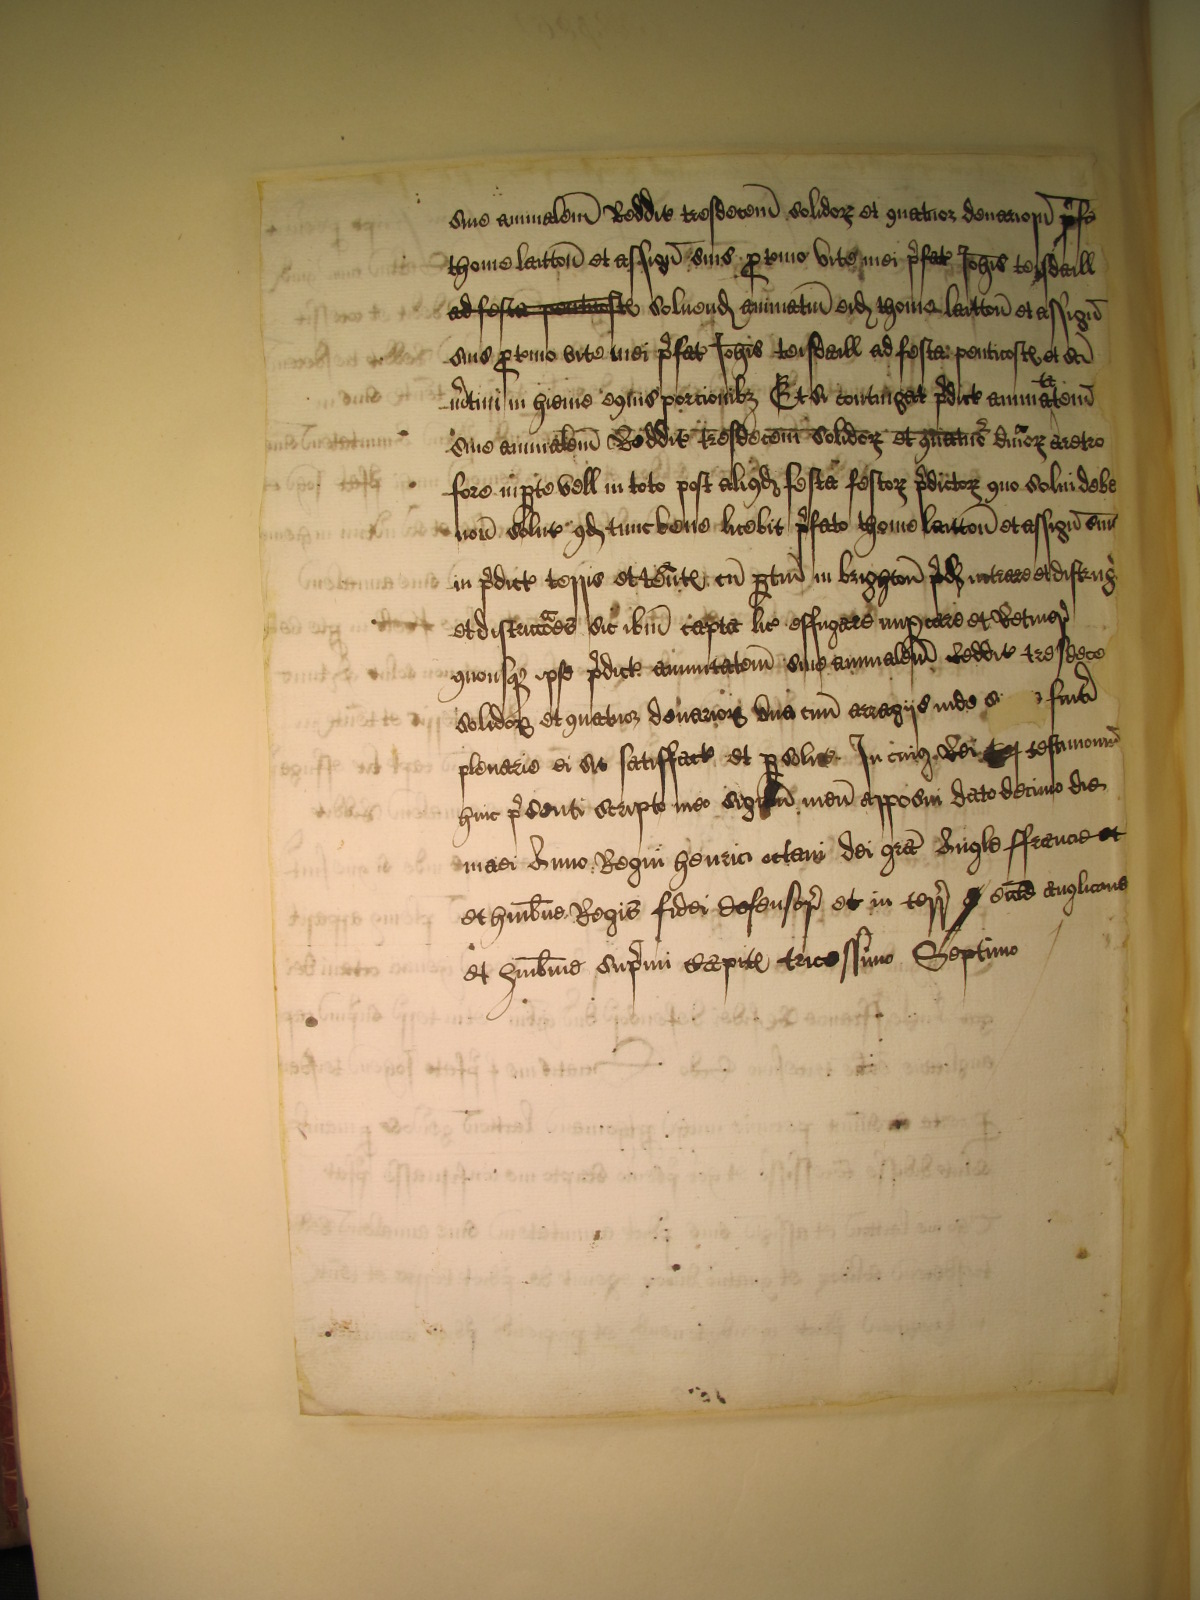 sive annualem Reddit tresdecem solidorz et quatuor denariorum prefat
thome laitton et assign suis pro termino vite mei prefat Johis teisdaill
ad festa penticoste solvend annuatim eidm thome laitton et assign
suis pro termino vite mei prefat Johis teisdaill ad festa penticoste et sci
mrtini in hieme equis porcionibz Et si contingat predict annuitatem
sive annualem Reddit tresdecem solidorz et quatuor denarorz aretro
fore in parte vell in toto post aliqd festa festorz predictorz quo solui debe
non solut qd tunc bene licebit prefato thome laitton et assign suis
in predict terris et tentis cum pertin in brighton predz intrare et distring
et districciones sic ibim captas licite effugare imparcare et Retinere
quousqz ipse predict annuitatem sive annualem Reddit tresdece
solidorz et quatuor denariorz una cum arragijs inde si fuerit
plenarie ei sit satisffact et persolut In cuiqz Rei testimonium
huic presenti scripto meo sigillum meum apposui dato decimo die
maei Anno Regni henrici octavi dei gra Anglie ffrancie et
et hiubnie Regis fidei defensor et in terr ecclie anglicane
et hiubnie supremi capitis tricessimo Septimo